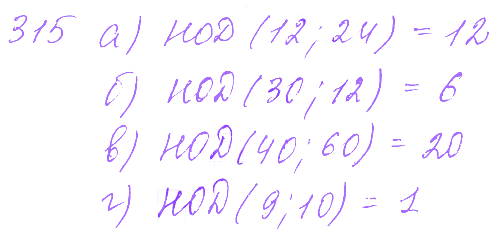 315 а) НОД (12; 24) = 12
б) НОД (30; 12) = 6
в) НОД (40; 60) = 20
г) НОД (9; 10) = 1